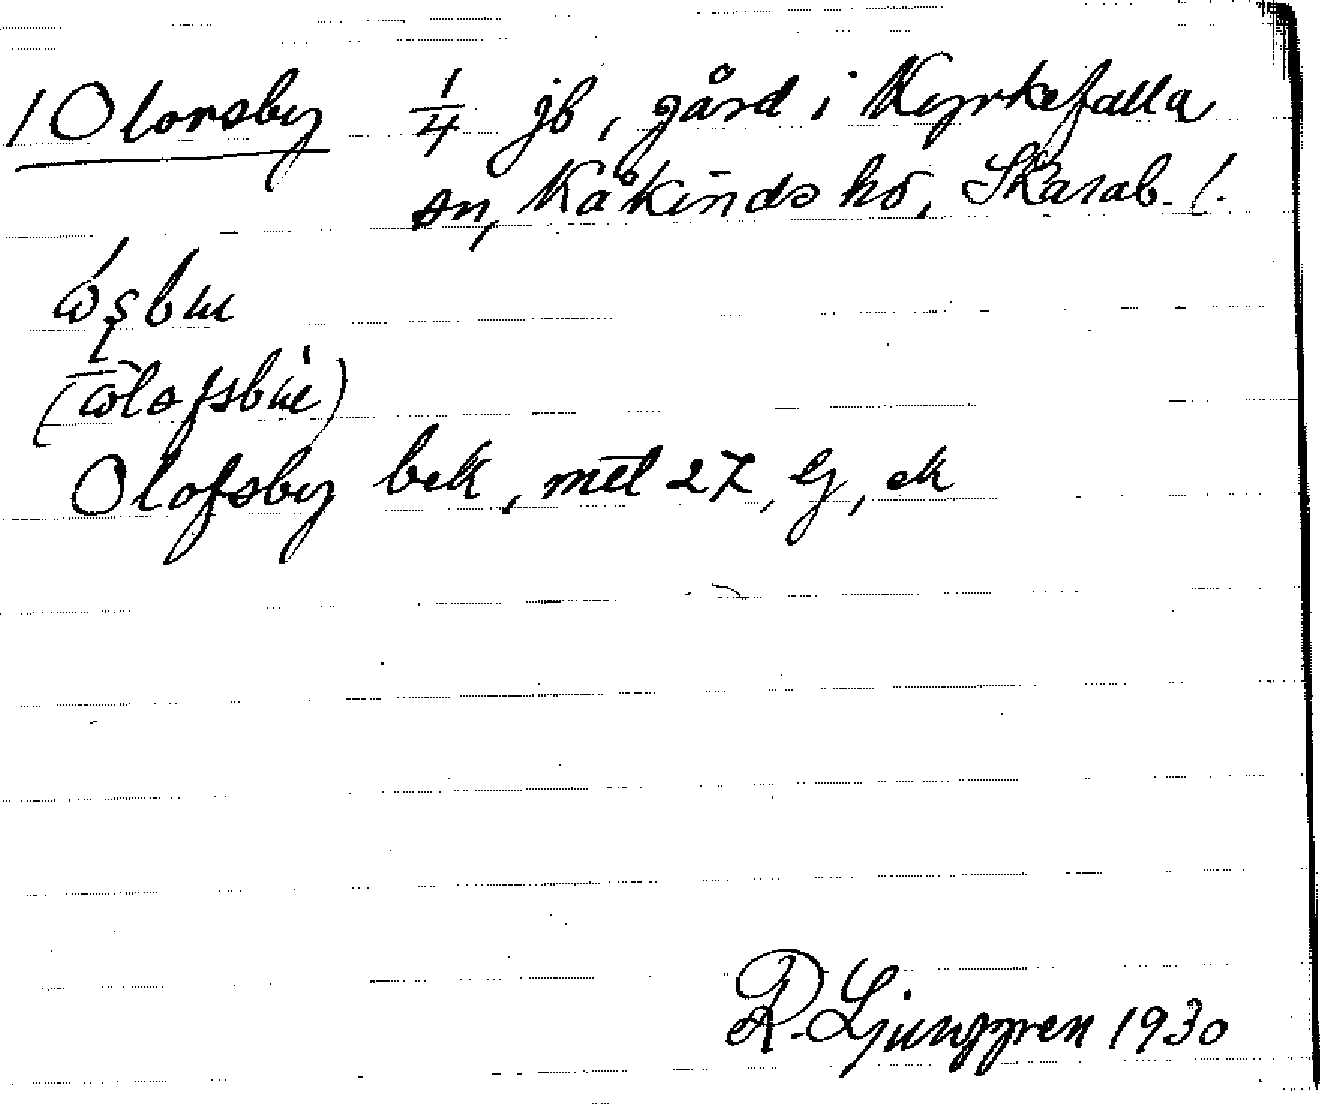 1 Olorsby 1/4 jb, gård i Kyrkefalla
sn, Kåkinds hd, Skarab. l.
(ωlofsbɯ)
Olofsby bek, mtl 27, Gj, ek
R. Ljunggren 1930